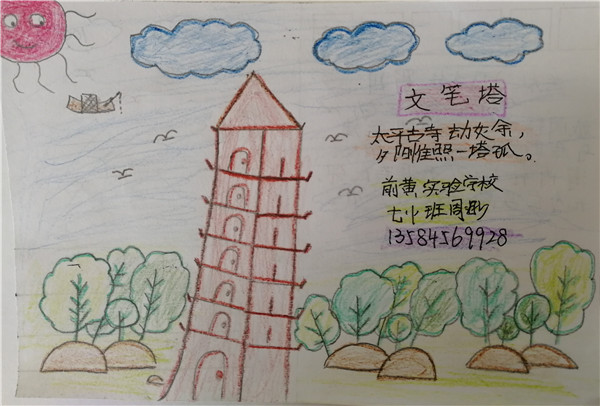 文笔塔
太平古寺劫灰余，
夕阳惟照一塔孤。
前黄实验学校
七班周
13584569928